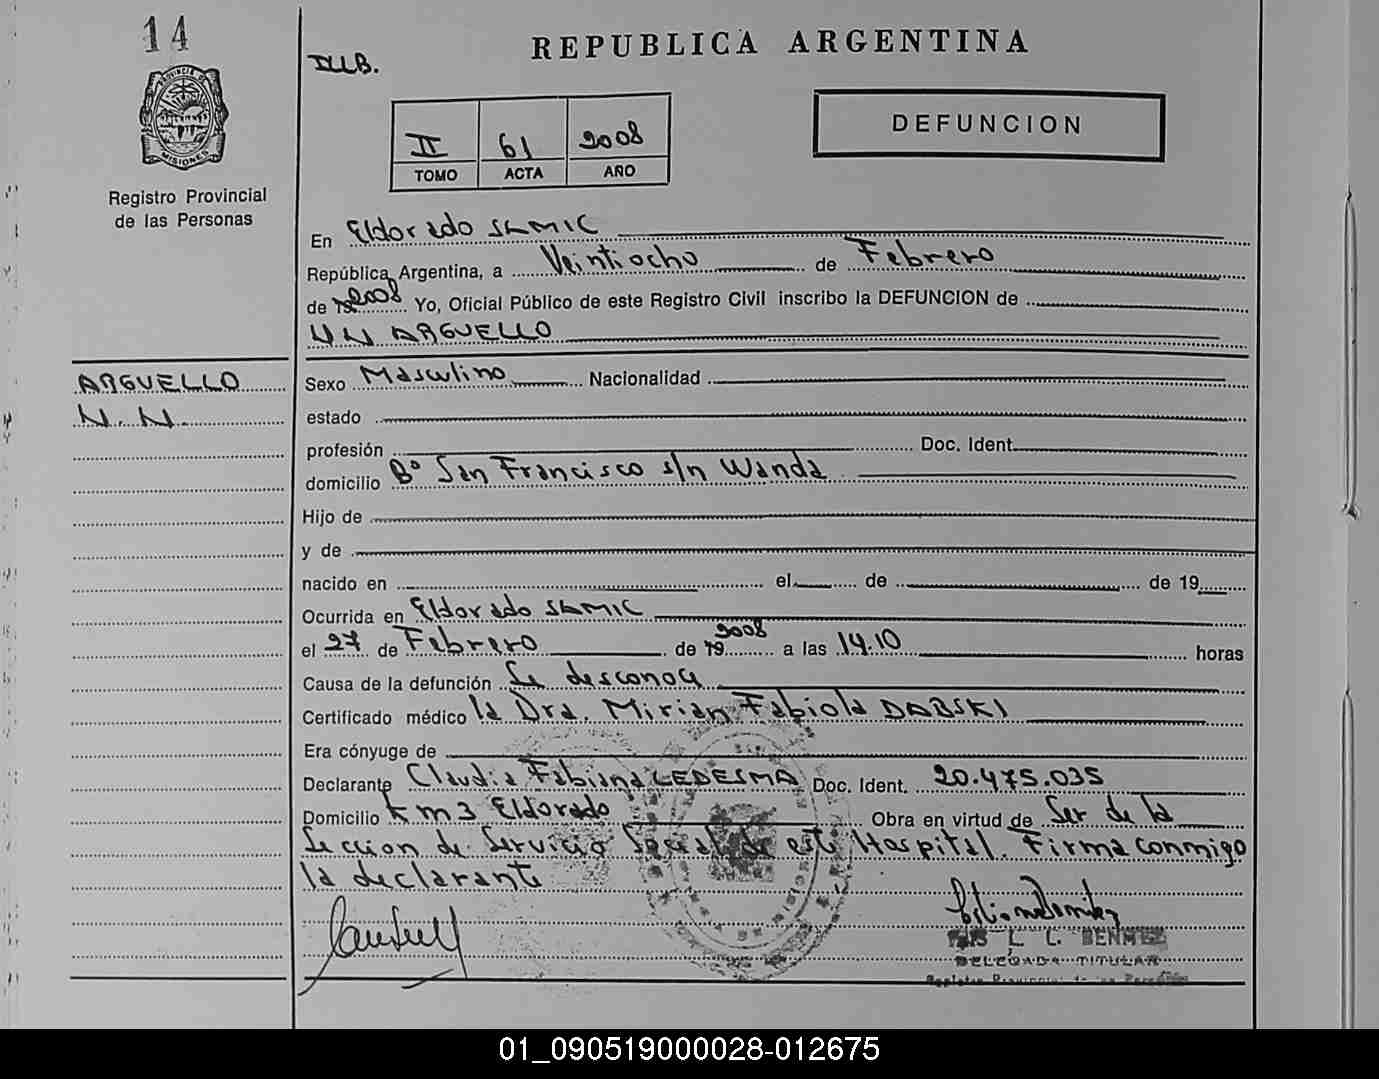 14
PROVINCIA DE
MISIONES
Registro Provincial
de las Personas
REPUBLICA ARGENTINA
II 61 2008
TOMO ACTA AÑO
DEFUNCION
En Eldorado SAMIC
República Argentina, a Veintiocho de Febrero
de 19 2008 Yo, Oficial Público de este Registro Civil inscribo la DEFUNCION de
NN ARGUELLO
ARGUELLO
N.N.
Sexo Masculino Nacionalidad
estado
profesión Doc. Ident.
domicilio Bº San Francisco s/n Wanda
Hijo de
y de
nacido en el de de 19
Ocurrida en Eldorado SAMIC
el 27 de Febrero de 19 2008 a las 14.10 horas
Causa de la defunción Se desconoce
Certificado médico la Dra. Mirian Fabiola DABSKI
Era cónyuge de
Declarante Claudia Fabiana LEDESMA Doc. Ident. 20.475.035
Domicilio Km 3 Eldorado Obra en virtud de Ser de la
Seccion de Servicio Social de este Hospital. Firma conmigo
la declarante
DELEGADA TITULAR
Registro Provincial de las Personas
01_090519000028-012675